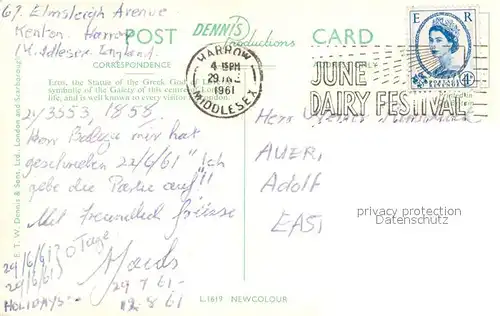 67. Elmsleigh Avenue
Kenton. Harrow
Middlesex England.
POST
DENNIS
Productions
CARD
CORRESPONDENCE
Eros, the Statue of the Greek God of
symbolic of the Gaiety of this
life, and is well known to every visitor
HARROW
4-15PM
29 JNE
1961
MIDDLESEX
JUNE
DAIRY FESTIVAL
E R
24 3553, 1858
Herr mir hat
geschrieben 22/6/61 "Ich
gebe die Partie auf"!!
Mit Freundlich grüsse
29/6/61? 0 Tage.
29/6/61
29 7 61 -
HOLIDAYS. 12 8 61
Herr
AUER,
Adolf
EAST
privacy protection
Datenschutz
E. T. W. Dennis & Sons, Ltd., London and Scarborough
L.1619 NEWCOLOUR